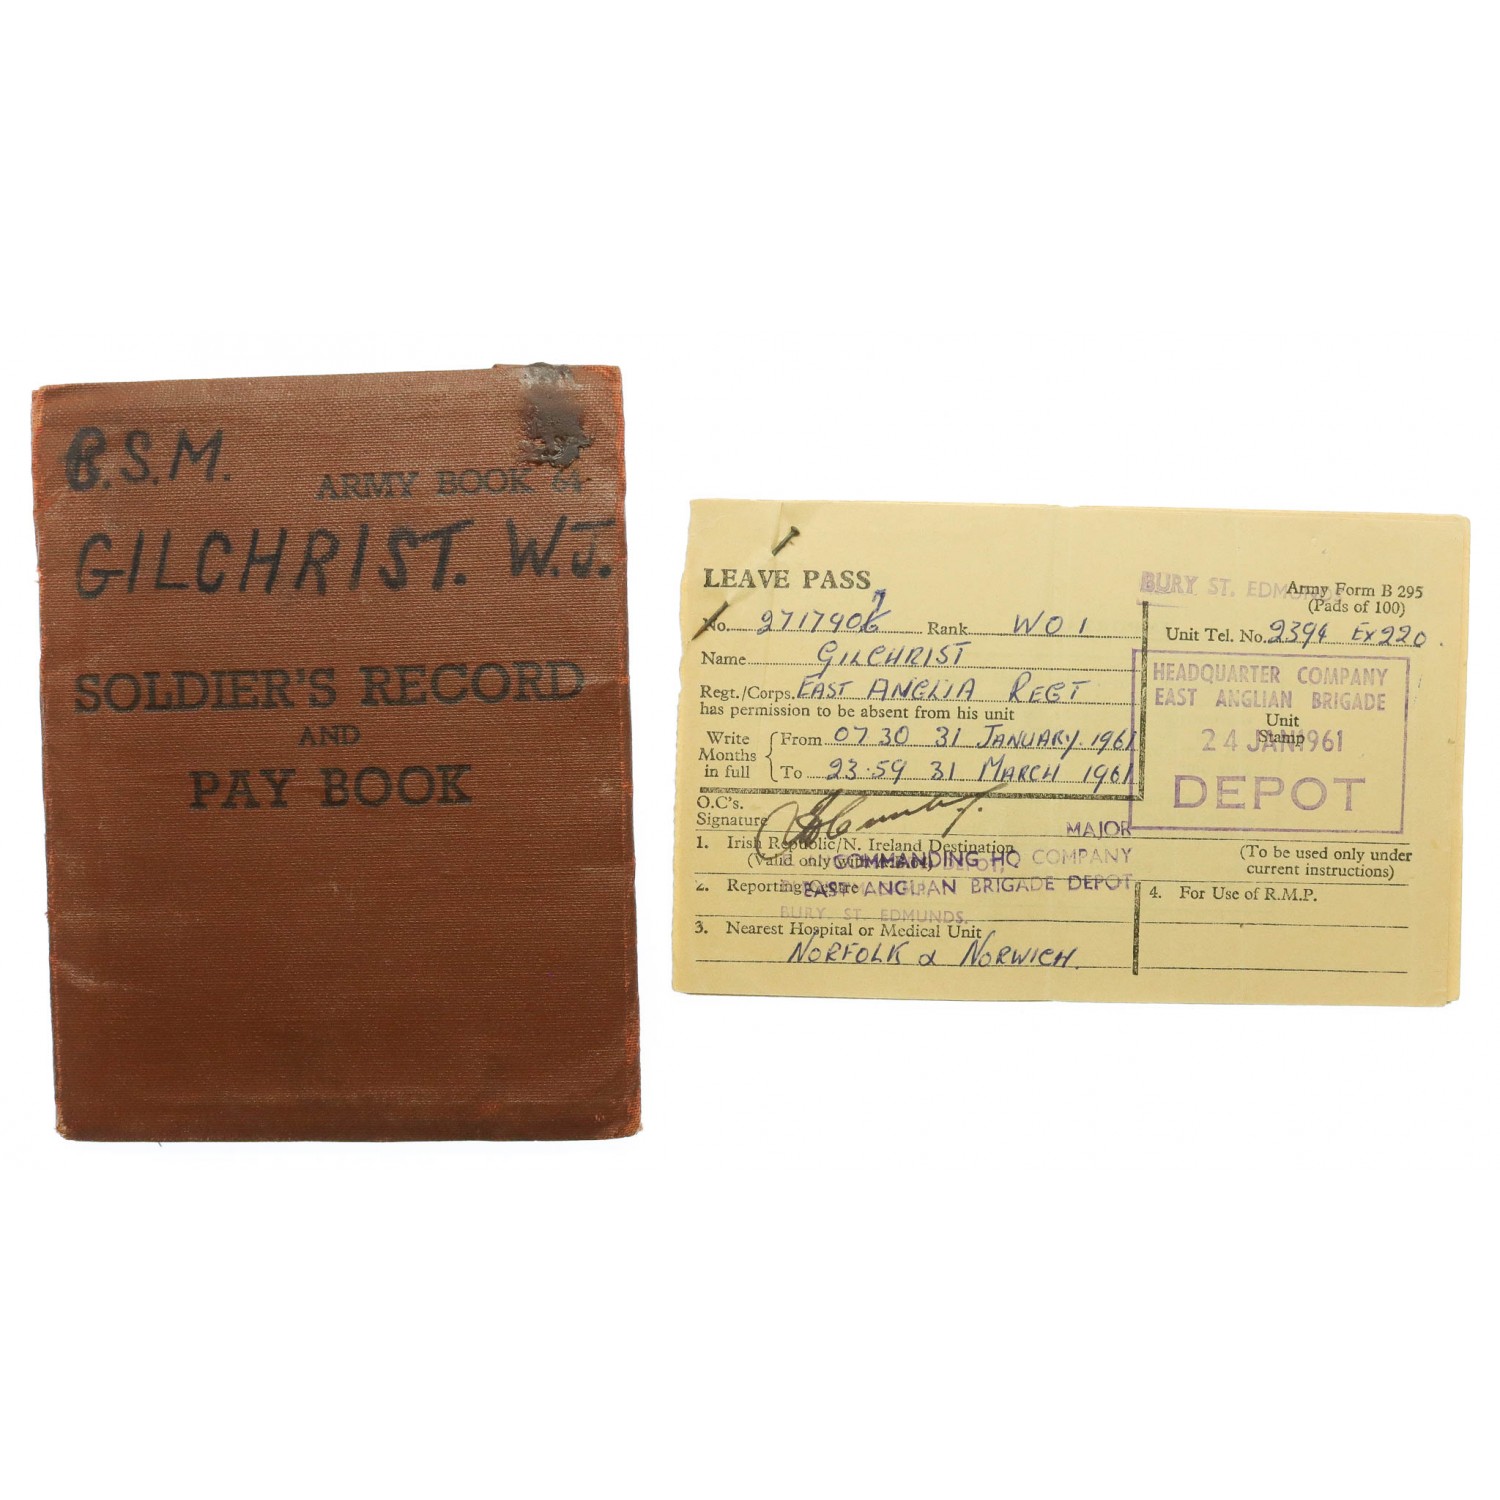 R.S.M.
ARMY BOOK 64
GILCHRIST. W.J.
SOLDIER'S RECORD
AND
PAY BOOK
LEAVE PASS
BURY ST. EDMUNDS
Army Form B 295
(Pads of 100)
No. 2717907 Rank WO1
Unit Tel. No. 2394 Ex 220.
Name GILCHRIST
Regt./Corps. EAST ANGLIA REGT
has permission to be absent from his unit
Write Months in full
From 07 30 31 JANUARY. 1961
To 23.59 31 MARCH 1961
HEADQUARTER COMPANY
EAST ANGLIAN BRIGADE
Unit
Stamp
24 JAN 1961
DEPOT
O.C's.
Signature
MAJOR
1. Irish Republic/N. Ireland Destination
(Valid only
COMMANDING HQ COMPANY
DEPOT,
(To be used only under
current instructions)
2. Reporting Centre
EAST ANGLIAN BRIGADE DEPOT
BURY ST. EDMUNDS.
4. For Use of R.M.P.
3. Nearest Hospital or Medical Unit
NORFOLK & NORWICH.